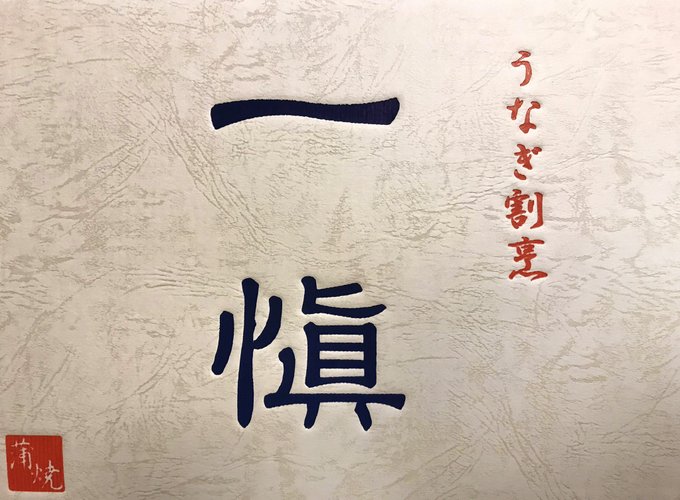 うなぎ割烹
一愼
蒲焼